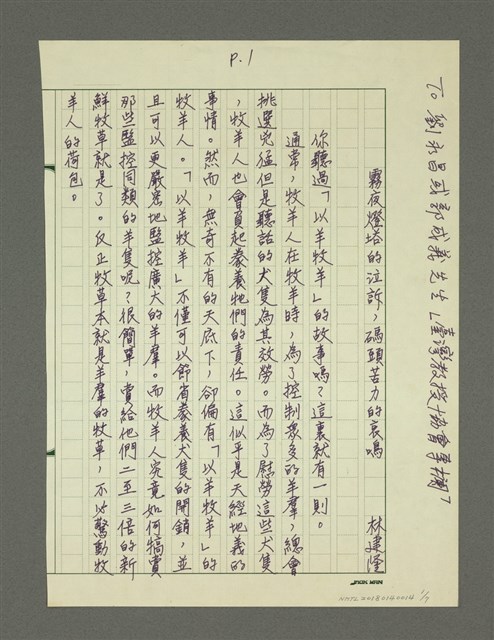 P.1
To 劉和昌或郭成義先生「臺灣教授協會專欄」
霧夜燈塔的泣訴，碼頭苦力的哀鳴 林建隆
你聽過「以羊牧羊」的故事嗎？這裏就有一則。
通常，牧羊人在牧羊時，為了控制眾多的羊羣，總會
挑選兇猛但是聽話的犬隻為其效勞。而為了慰勞這些犬隻
，牧羊人也會負起豢養牠們的責任。這似乎是天經地義的
事情。然而，無奇不有的天底下，卻偏有「以羊牧羊」的
牧羊人。「以羊牧羊」不僅可以節省豢養犬隻的開銷，並
且可以更嚴密地監控廣大的羊羣。而牧羊人究竟如何犒賞
那些監控同類的羊隻呢？很簡單，賞給他們二至三倍的新
鮮牧草就是了。反正牧草本就是羊羣的牧草，不必驚動牧
羊人的荷包。
NMTL20180140014 1/7